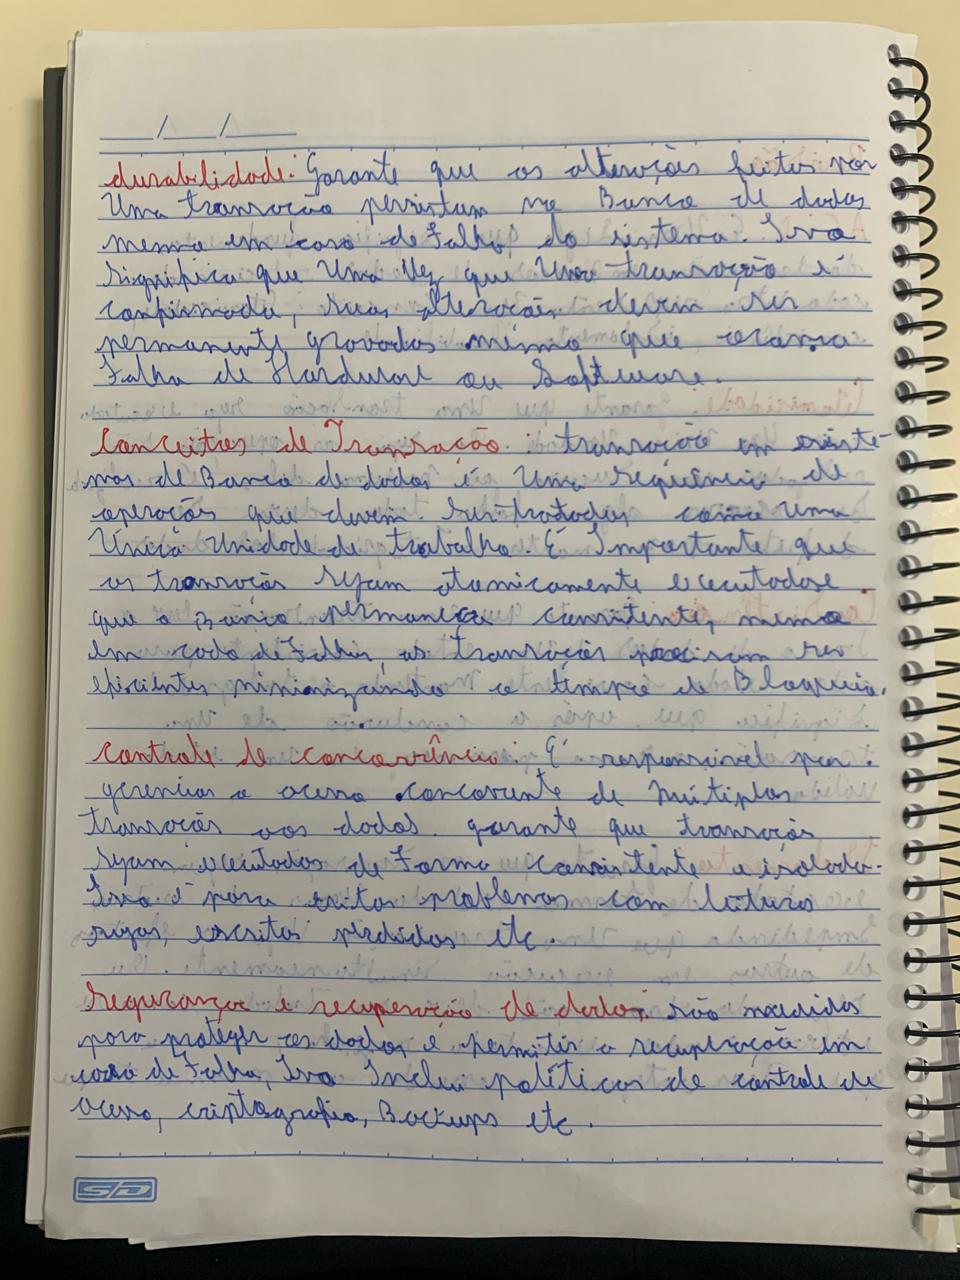 ___/___/___
durabilidade: Garante que as alterações feitas por
Uma transação persistam no Banco de dados
mesmo em caso de Falha do sistema. Isso
Significa que Uma Vez que Uma transação é
confirmada, suas alterações devem ser
permanente gravadas mesmo que ocorra
Falha de Hardware ou Software.
Conceitos de Transação: transação em siste-
mas de Banco de dados é Uma sequência de
operações que devem ser tratadas como uma
Única Unidade de trabalho. É Importante que
as transações sejam atomicamente executadas e
que o Banco permaneça consistente, mesmo
em caso de Falhas, as transações precisam ser
eficientes minimizando o tempo de Bloqueio.
Controle de concorrência: É responsável por
gerenciar o acesso concorrente de múltiplas
transações aos dados. garante que transações
sejam executadas de Forma consistente e isolada.
Isso é para evitar problemas com leituras
sujas, escritas perdidas etc.
Segurança e recuperação de dados: são medidas
para proteger os dados e permitir a recuperação em
caso de Falha, Isso Inclui políticas de controle de
acesso, criptografia, Backups etc.
SD